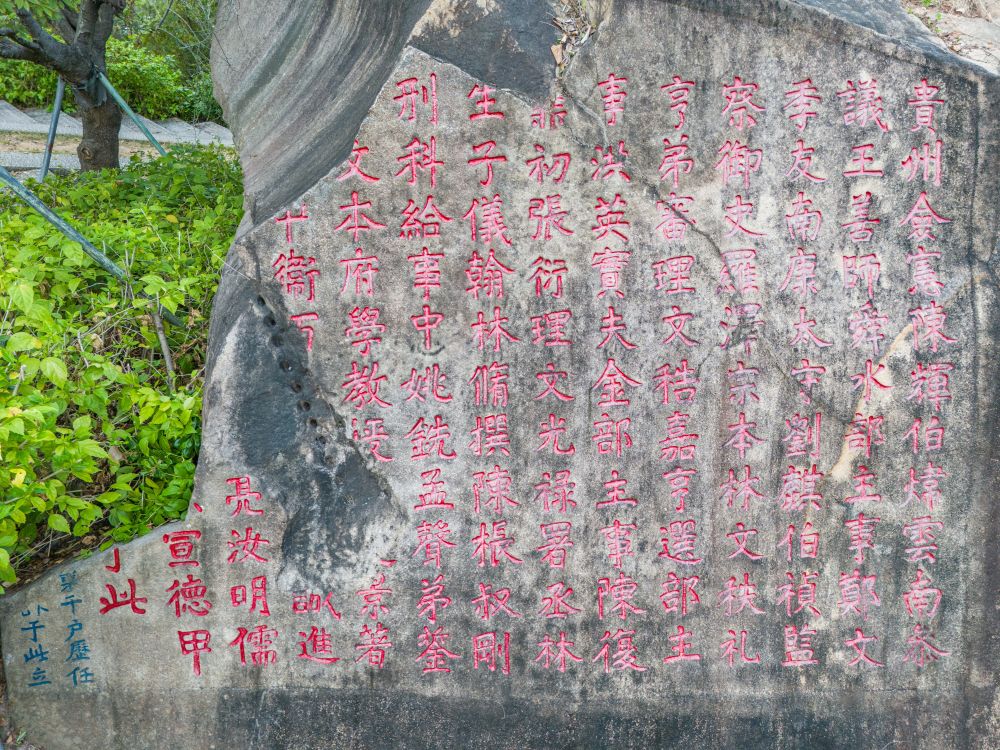 貴州僉憲陳輝伯煒雲南叅
議王善師舜水部主事鄭文
季友南康太守劉麒伯禎監
察御史羅澤宗本林文秩礼
亨弟審理文秸嘉亨選部主
事洪英實夫金部主事陳復
初張衍理文光祿署丞林
生子儀翰林脩撰陳棖叔剛
刑科給事中姚銑孟聲苐鎣
文本府學教授 景著
中衛百 進
亮汝明儒
宣德甲
于此
千户歷任
于此立